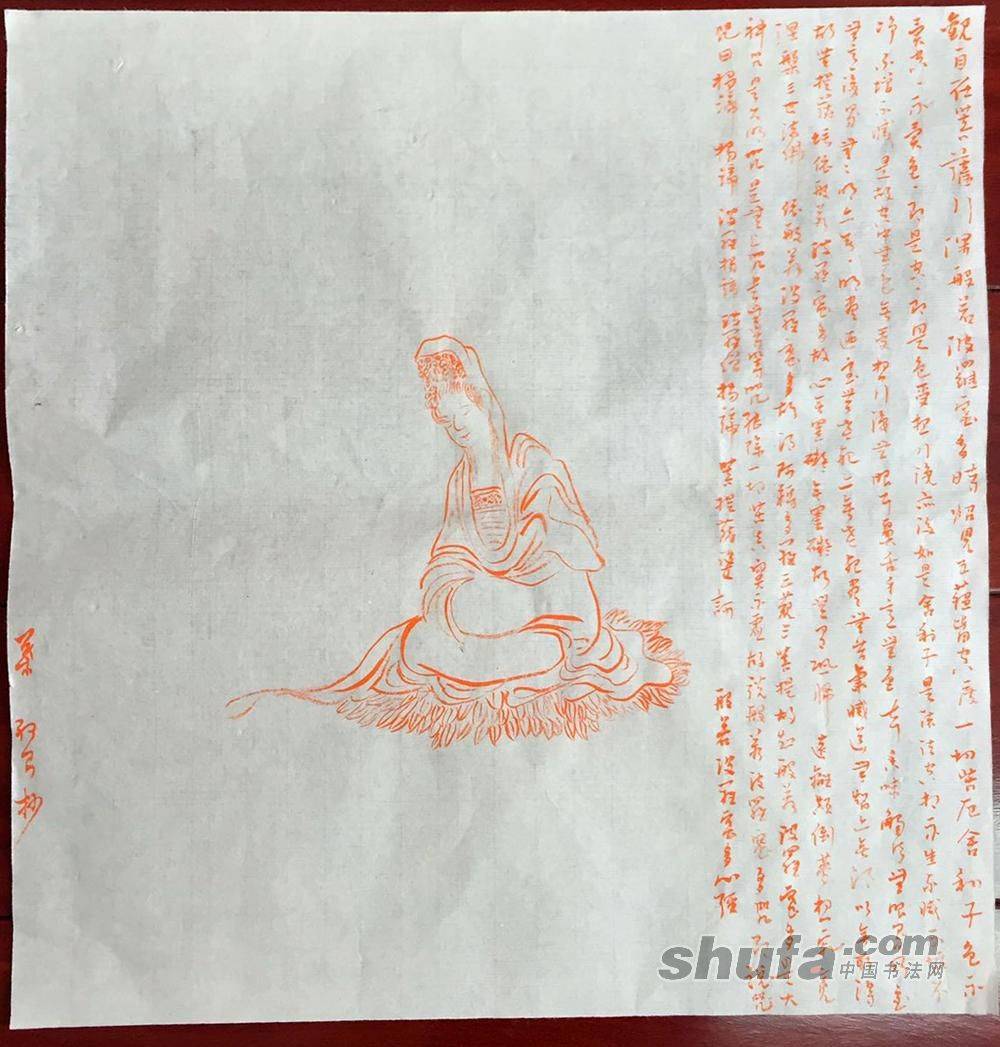 觀自在菩薩行深般若波羅蜜多時照見五蘊皆空度一切苦厄舍利子色不
異空、不異色、即是空、即是色受想行識亦復如是舍利子是諸法空相不生不滅不垢不
净不增不減是故空中無色無受想行識無眼耳鼻舌身意無色声香味觸法無眼界乃至
無意識界無、明亦無、明盡乃至無老死亦無老死盡無苦集滅道無智亦無得以無所得
故菩提薩埵依般若波羅蜜多故心無罣礙無罣礙故無有恐怖遠離顛倒夢想究竟
涅槃三世諸佛依般若波羅蜜多故得阿耨多羅三藐三菩提故知般若波羅蜜多是大
神咒是大明咒是無上咒是無等等咒能除一切苦真實不虛故說般若波羅蜜多咒即說咒
咒曰揭諦 揭諦 波羅揭諦 波羅僧揭諦 菩提薩婆訶 般若波羅蜜多心經
葉 抄
shufa.com
中国书法网